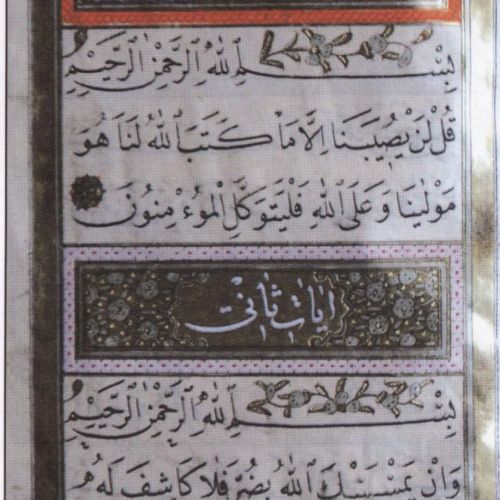 بِسْمِ اللهِ الرَّحْمٰنِ الرَّحِيْمِ
قُلْ لَنْ يُصٖيبَنَا اِلَّا مَا كَتَبَ اللهُ لَنَا هُوَ
مَوْلٰينَا وَعَلَى اللهِ فَلْيَتَوَكَّلِ الْمُوءْمِنُونَ
آيات ثانى
بِسْمِ اللهِ الرَّحْمٰنِ الرَّحِيْمِ
وَاِنْ يَمْسَسْكَ اللهُ بِضُرٍّ فَلَا كَاشِفَ لَهُ